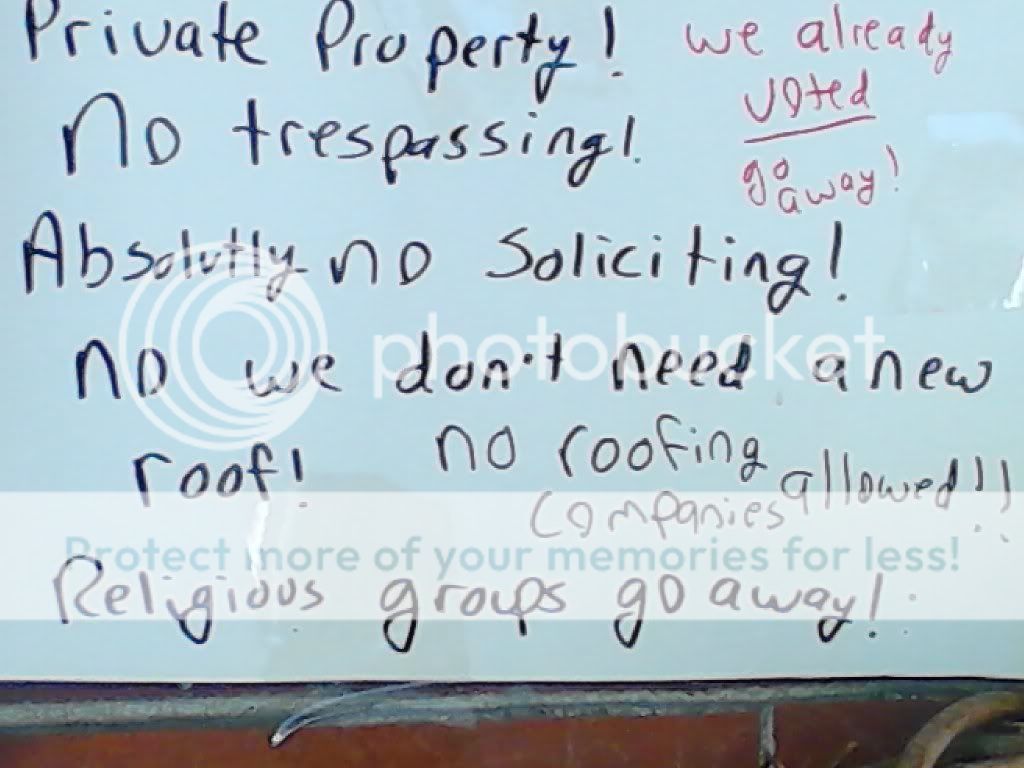 Private Property!
we already
voted
go
away!
No trespassing!
Absolutly no Soliciting!
no we don't need a new
roof!
no roofing
companies
allowed!!
Religious groups go away!
photobucket
Protect more of your memories for less!